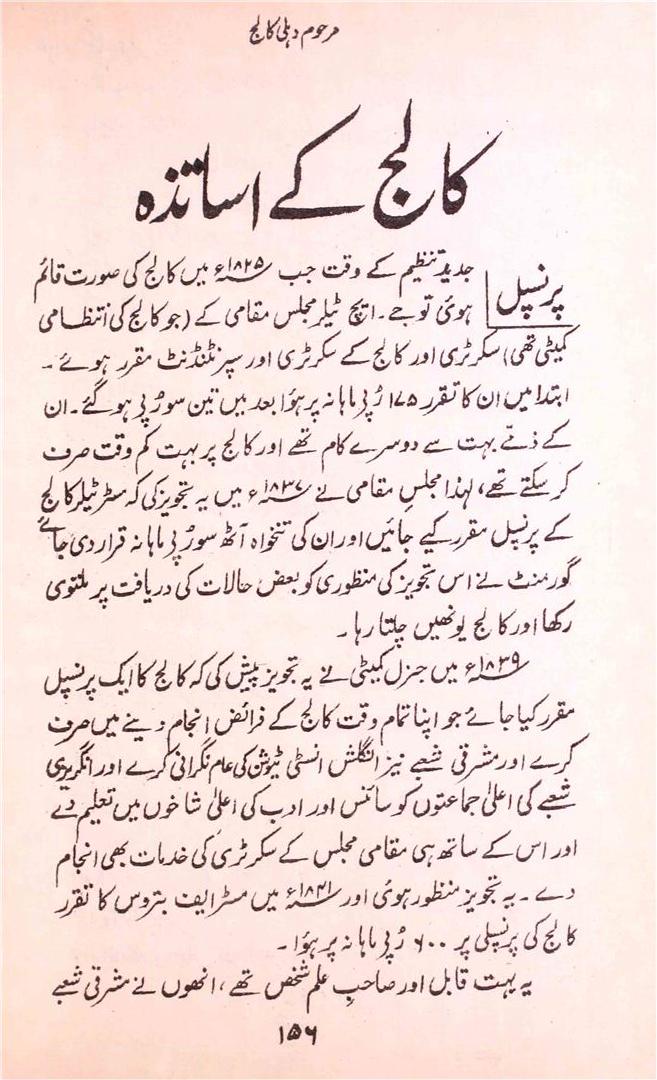 مرحوم دہلی کالج
کالج کے اساتذہ
پرنسپل
جدید تنظیم کے وقت جب ۱۸۲۵ء میں کالج کی صورت قائم
ہوئی تو جے۔ ایچ ٹیلر مجلس مقامی کے (جو کالج کی انتظامی
کمیٹی تھی) سکرٹری اور کالج کے سکرٹری اور سپرنٹنڈنٹ مقرر ہوئے۔
ابتدا میں ان کا تقرر ۱۷۵ رُپی ماہانہ پر ہؤا بعد میں تین سو رُپی ہوگئے۔ ان
کے ذمّے بہت سے دوسرے کام تھے اور کالج پر بہت کم وقت صرف
کرسکتے تھے، لہذا مجلسِ مقامی نے ۱۸۳۷ء میں یہ تجویز کی کہ مسٹر ٹیلر کالج
کے پرنسپل مقرر کیے جائیں اور ان کی تنخواہ آٹھ سو رُپی ماہانہ قرار دی جائے
گورمنٹ نے اس تجویز کی منظوری کو بعض حالات کی دریافت پر ملتوی
رکھا اور کالج یونھیں چلتا رہا۔
۱۸۳۹ء میں جنرل کمیٹی نے یہ تجویز پیش کی کہ کالج کا ایک پرنسپل
مقرر کیا جائے جو اپنا تمام وقت کالج کے فرائض انجام دینے میں صرف
کرے اور مشرقی شعبے نیز انگلش انسٹی ٹیوشن کی عام نگرانی کرے اور انگریزی
شعبے کی اعلیٰ جماعتوں کو سائنس اور ادب کی اعلیٰ شاخوں میں تعلیم دے
اور اس کے ساتھ ہی مقامی مجلس کے سکرٹری کی خدمات بھی انجام
دے۔ یہ تجویز منظور ہوئی اور ۱۸۴۱ء میں مسٹر ایف بتروس کا تقرر
کالج کی پرنسپلی پر ۶۰۰ رُپی ماہانہ پر ہؤا۔
یہ بہت قابل اور صاحبِ علم شخص تھے، انھوں نے مشرقی شعبے
۱۵۶